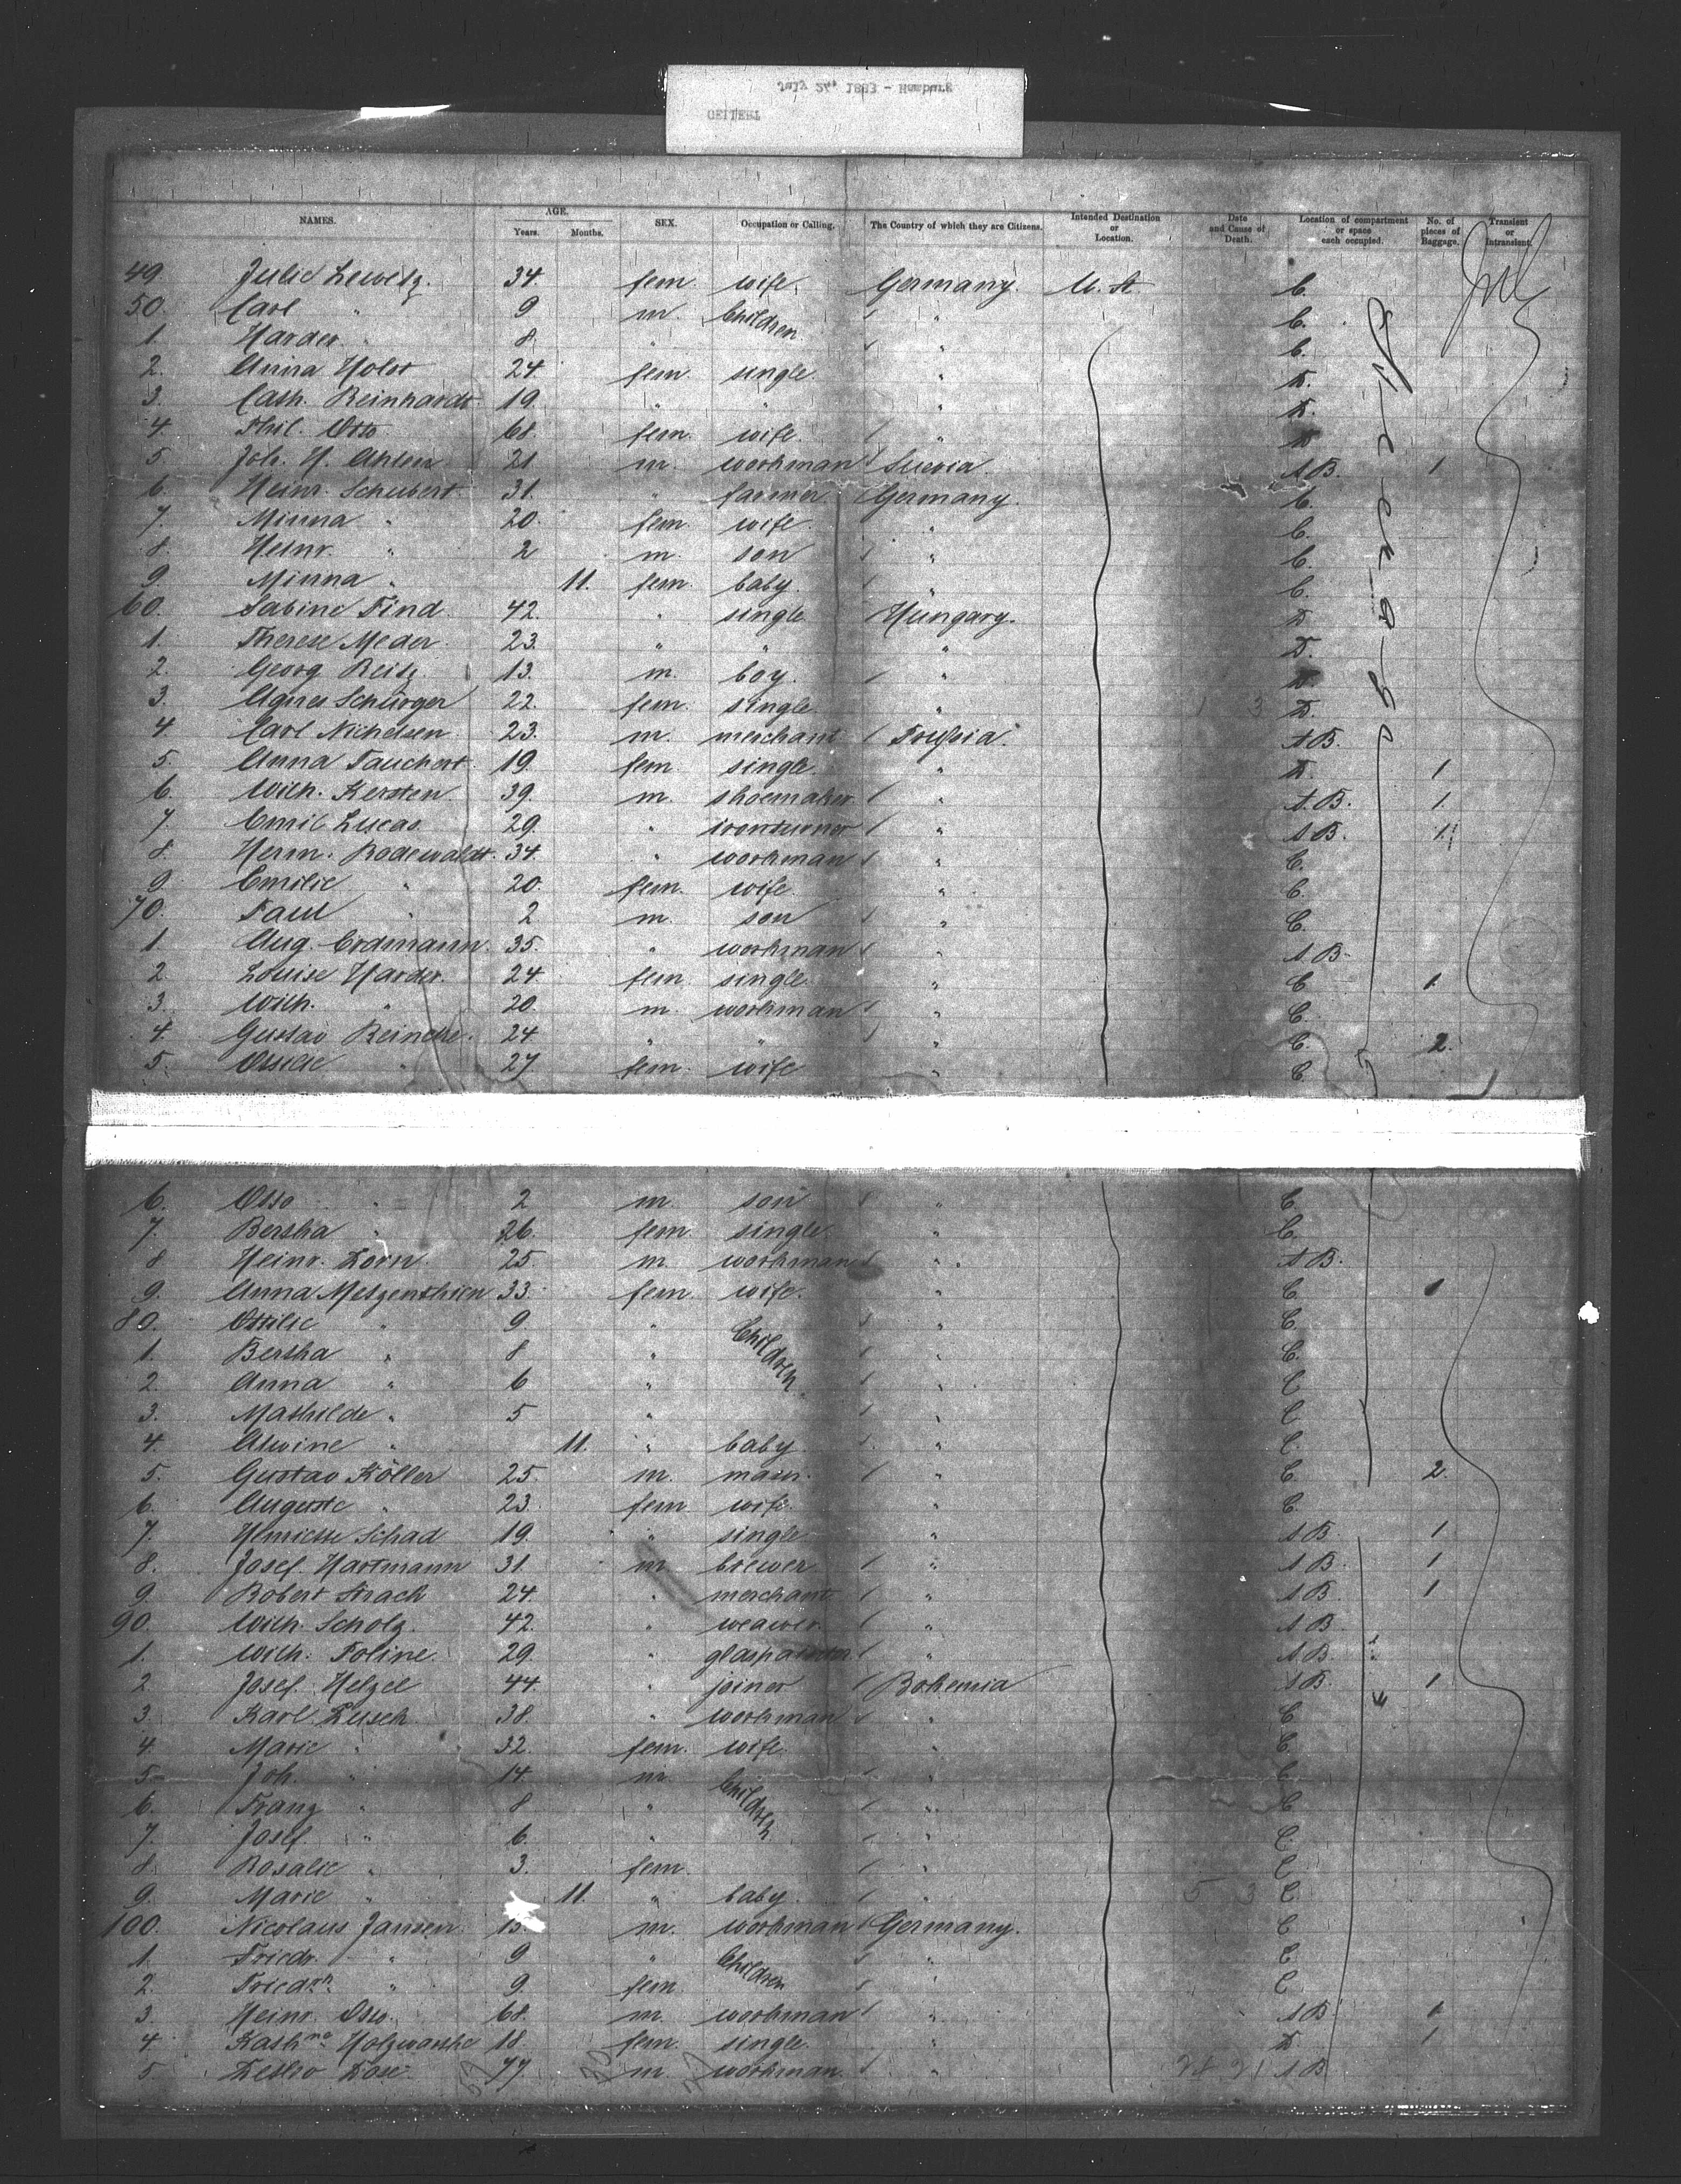 July 24, 1883 - Hamburg
NAMES. AGE. Years. Months. SEX. Occupation or Calling. The Country of which they are Citizens. Intended Destination or Location. Date and Cause of Death. Location of compartment or space each occupied. No. of pieces of Baggage. Transient or Intransient.
49. Julie Lewetz. 34. fem wife. Germany. U. St. C.
50. Carl " 9 m Children " C.
1. Harder " 8 " C.
2. Anna Holst 24 fem single. " D.
3. Cath. Reinhardt 19. " " " D.
4. Phil. Otto 68. fem. wife. " D
5. Joh. H. Ahlen 21 m. workman Suecia. A.B. 1.
6. Heinr. Schubert. 31. " farmer Germany. C.
7. Minna " 20. fem. wife. " C.
8. Heinr. " 2 m. son " C.
9. Minna " 11. fem. baby. " C.
60. Sabine Find. 42. " single Hungary. D
1. Therese Meder. 23. " " " D.
2. Georg Reitz. 13. m. boy. " D.
3. Agnes Schürger 22. fem. single. " D.
4. Carl 23. m. merchant Prussia. A.B.
5. Anna Tauchert. 19. fem. single. " D. 1.
6. Wilh. Kersten. 39. m. shoemaker " A.B. 1.
7. Emil Lucas. 29. " ironturner " A.B. 1.
8. Herm. Rodewaldt. 34. " workman " C.
9. Emilie " 20. fem. wife. " C.
70. Paul " 2 m. son " C.
1. Aug. Erdmann. 35. " workman " A.B.
2. Louise Harder. 24 fem. single. " C 1
3. Wilh. " 20. m. workman " C.
4. Gustav Reincke. 24. " " " C. 2.
5. Ottilie " 27 fem. wife " C.
6. Otto " 2 m. son " C.
7. Bertha " 26. fem. single. " C.
8 Heinr. Zorn. 25. m. workman " A.B.
9. Anna Metzenthien 33. fem wife. " C. 1
80. Ottilie " 9 " Children " C.
1. Bertha " 8 " " C.
2. Anna " 6 " " C
3. Mathilde " 5 " " C
4. Alwine " 11. " baby " C.
5. Gustav Köller 25. m. " C. 2.
6. Auguste " 23. fem. wife. " C.
7. Schad 19. " single " A.B. 1.
8. Josef Hartmann 31. m brewer " A.B. 1
9. Robert Strach 24. " merchant " A.B. 1
90. Wilh. Scholz. 42. " weawer. " A.B.
1. Wilh. Foline. 29. " " A.B.
2. Josef Helzel 44. " joiner Bohemia A.B. 1
3. Karl Lusch. 38. " workman " C
4. Marie " 32. fem. wife. " C.
5. Joh. " 14. m. Children " C
6. Franz " 8 " " C
7. Josef " 6. " " C.
8. Rosalie " 3. fem. " C
9. Marie " 11. " baby. " C.
100. Nicolaus Jansen. 15. m. workman Germany. C
1. Friedr. " 9 " Children " C
2. " 9. fem. " C
3. Heinr. Otto. 68. m. workman " A.B. 1
4. Holzwarthe 18. fem. single. " D. 1
5. Detlev Dose. 77. m. workman. " A.B.